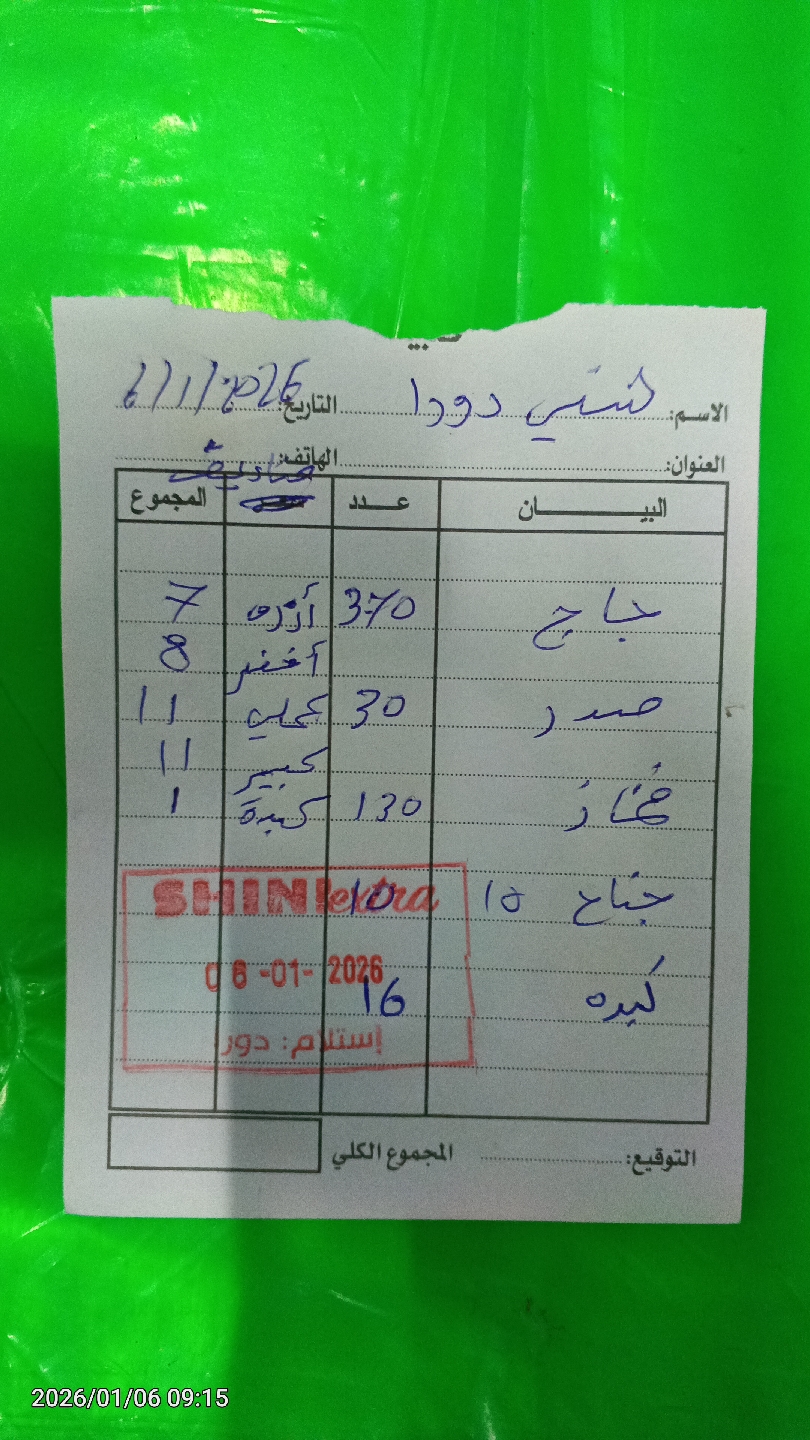 الاسم: شني دورا التاريخ: 6/1/2026
العنوان: الهاتف:
صناديق
البيـــــان عـــدد المجموع
جاج 370 أزرق 7
أخضر 8
صدر 30 عملي 11
كبير 11
فخاذ 130 كبدة 1
جناح 10 10
كبده 16
SHINI extra
06-01-2026
إستلام: دورا
التوقيع: المجموع الكلي
2026/01/06 09:15